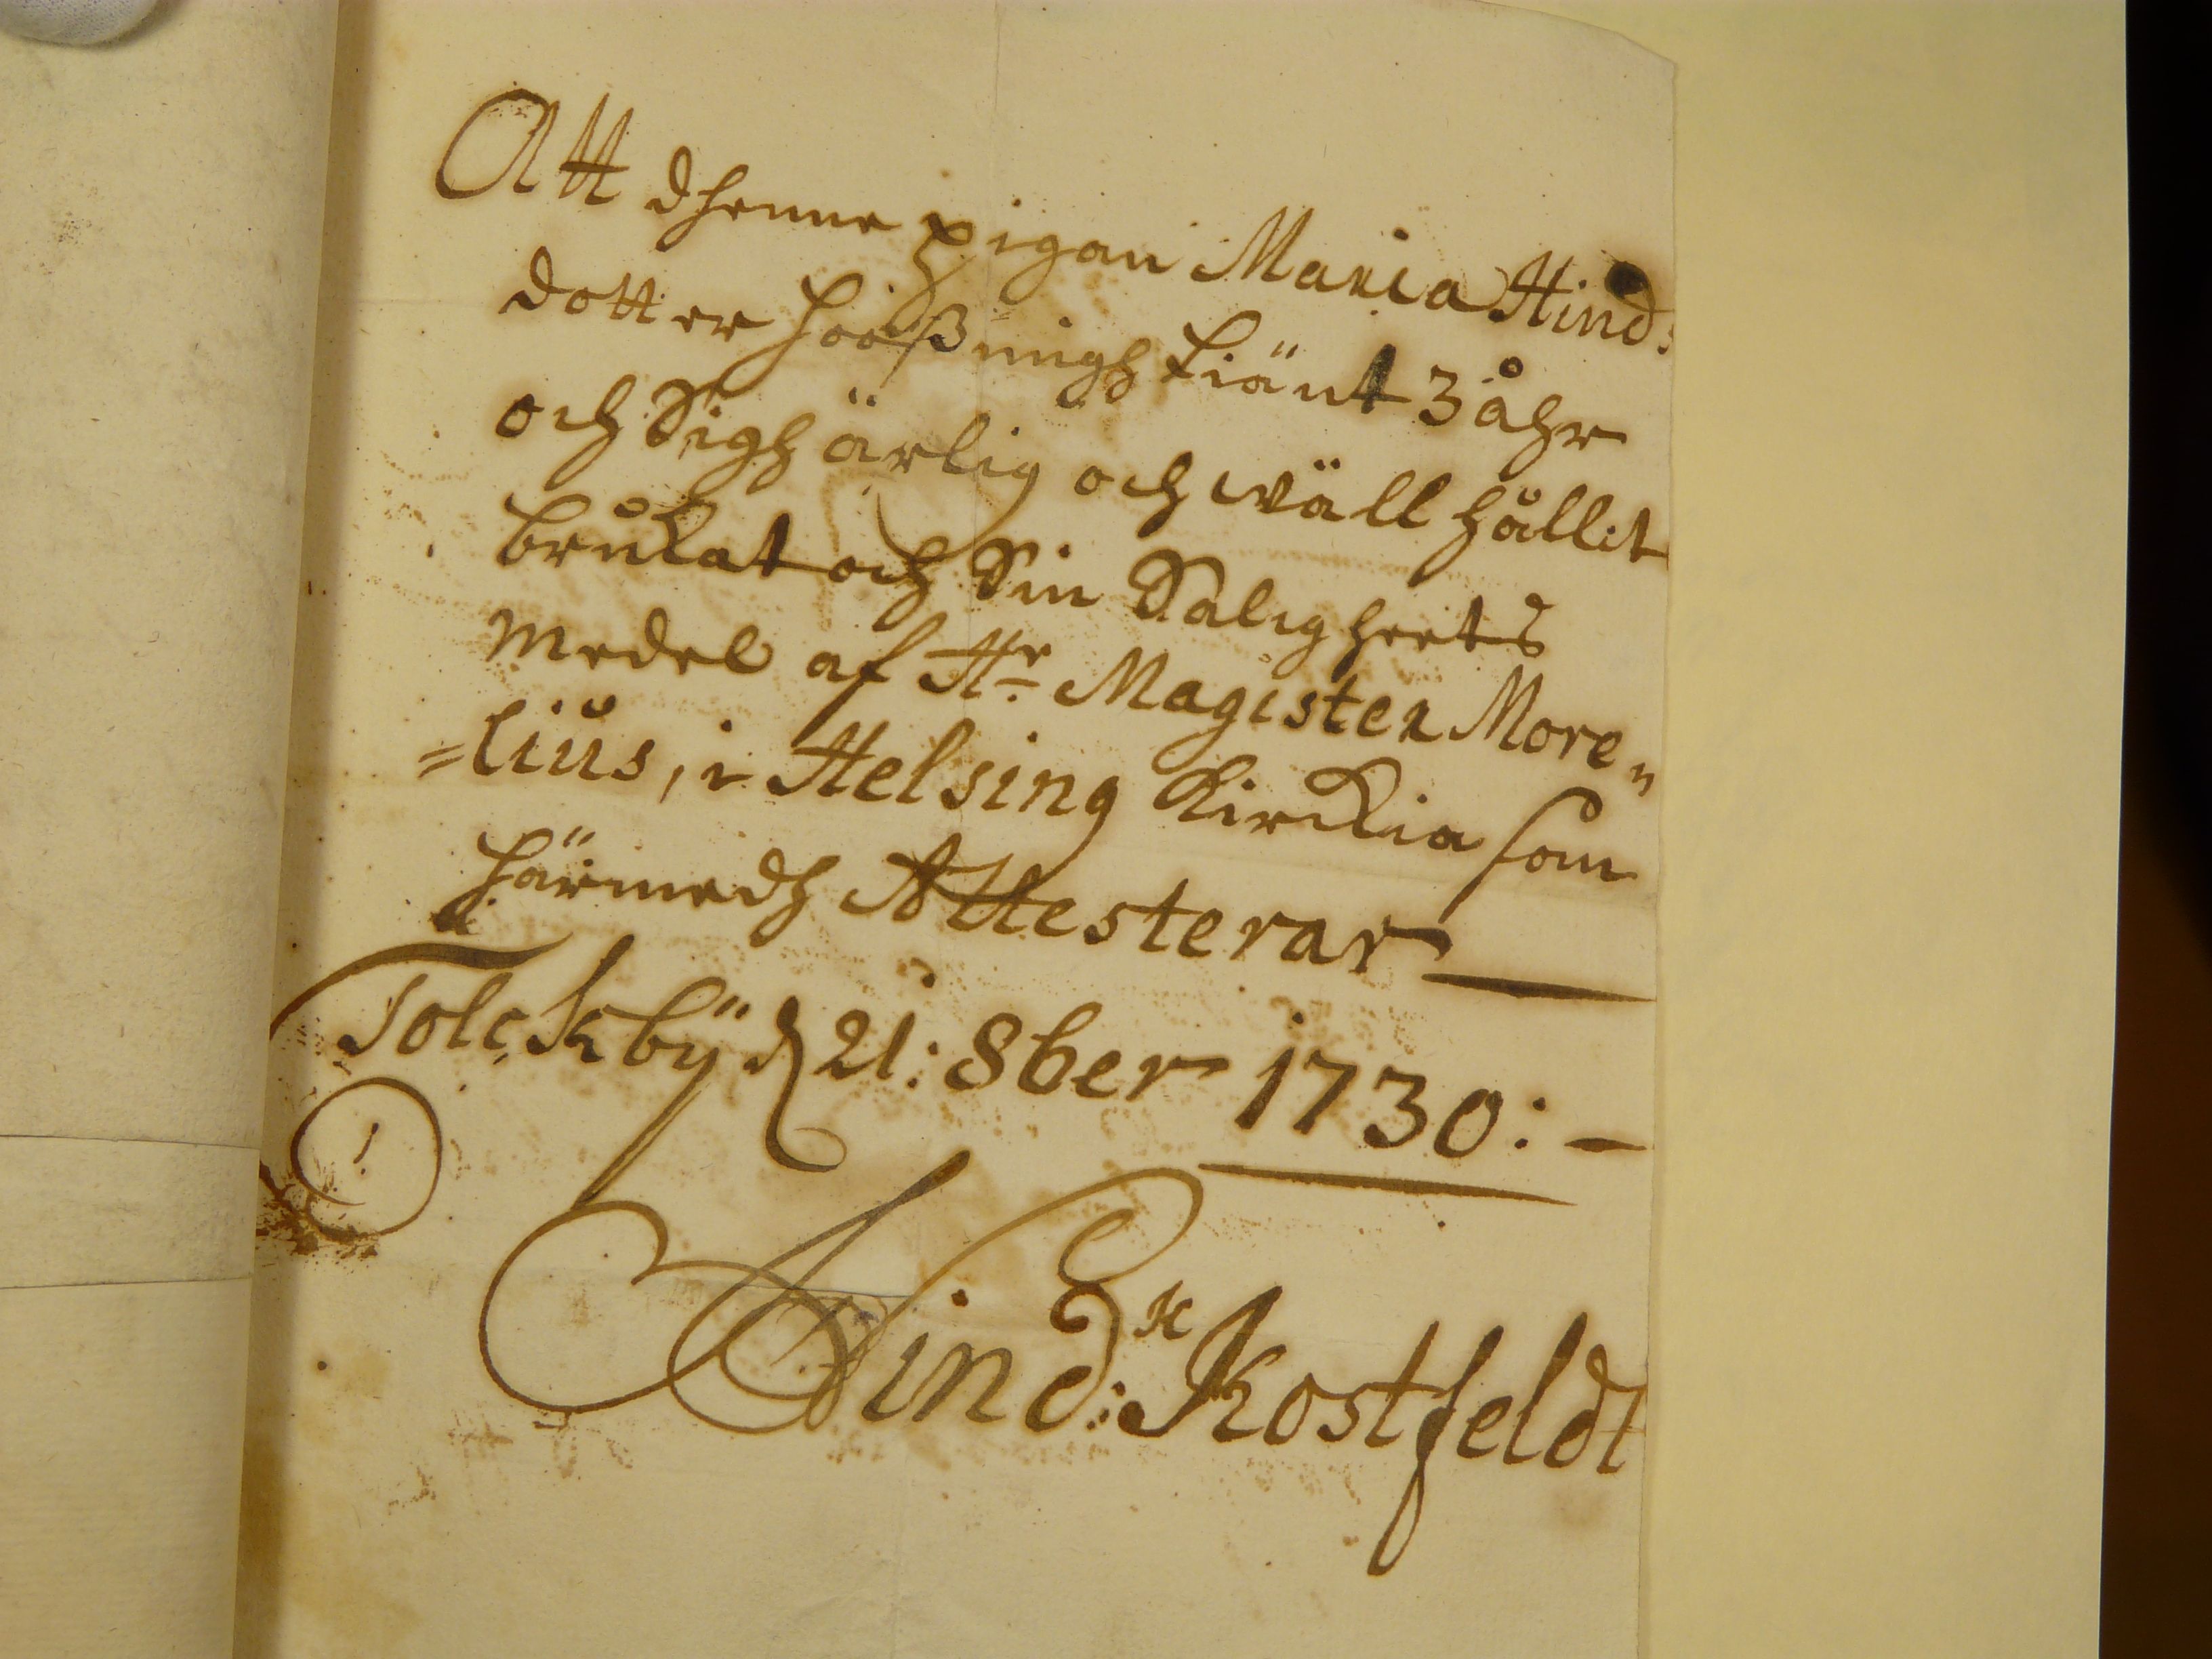 Att dhenne pigan Maria Hind:
dotter hooß migh tiänt 3 åhr
och Sigh ärlig och wäll hållit
brukat och Sin Saligheets
medel af Hr. Magister More„
=lius, i Helsing Kirckia som
härmedh Attesterar
Tolckbÿ d 21: 8ber 1730:-
Hindk: Kostfeldt